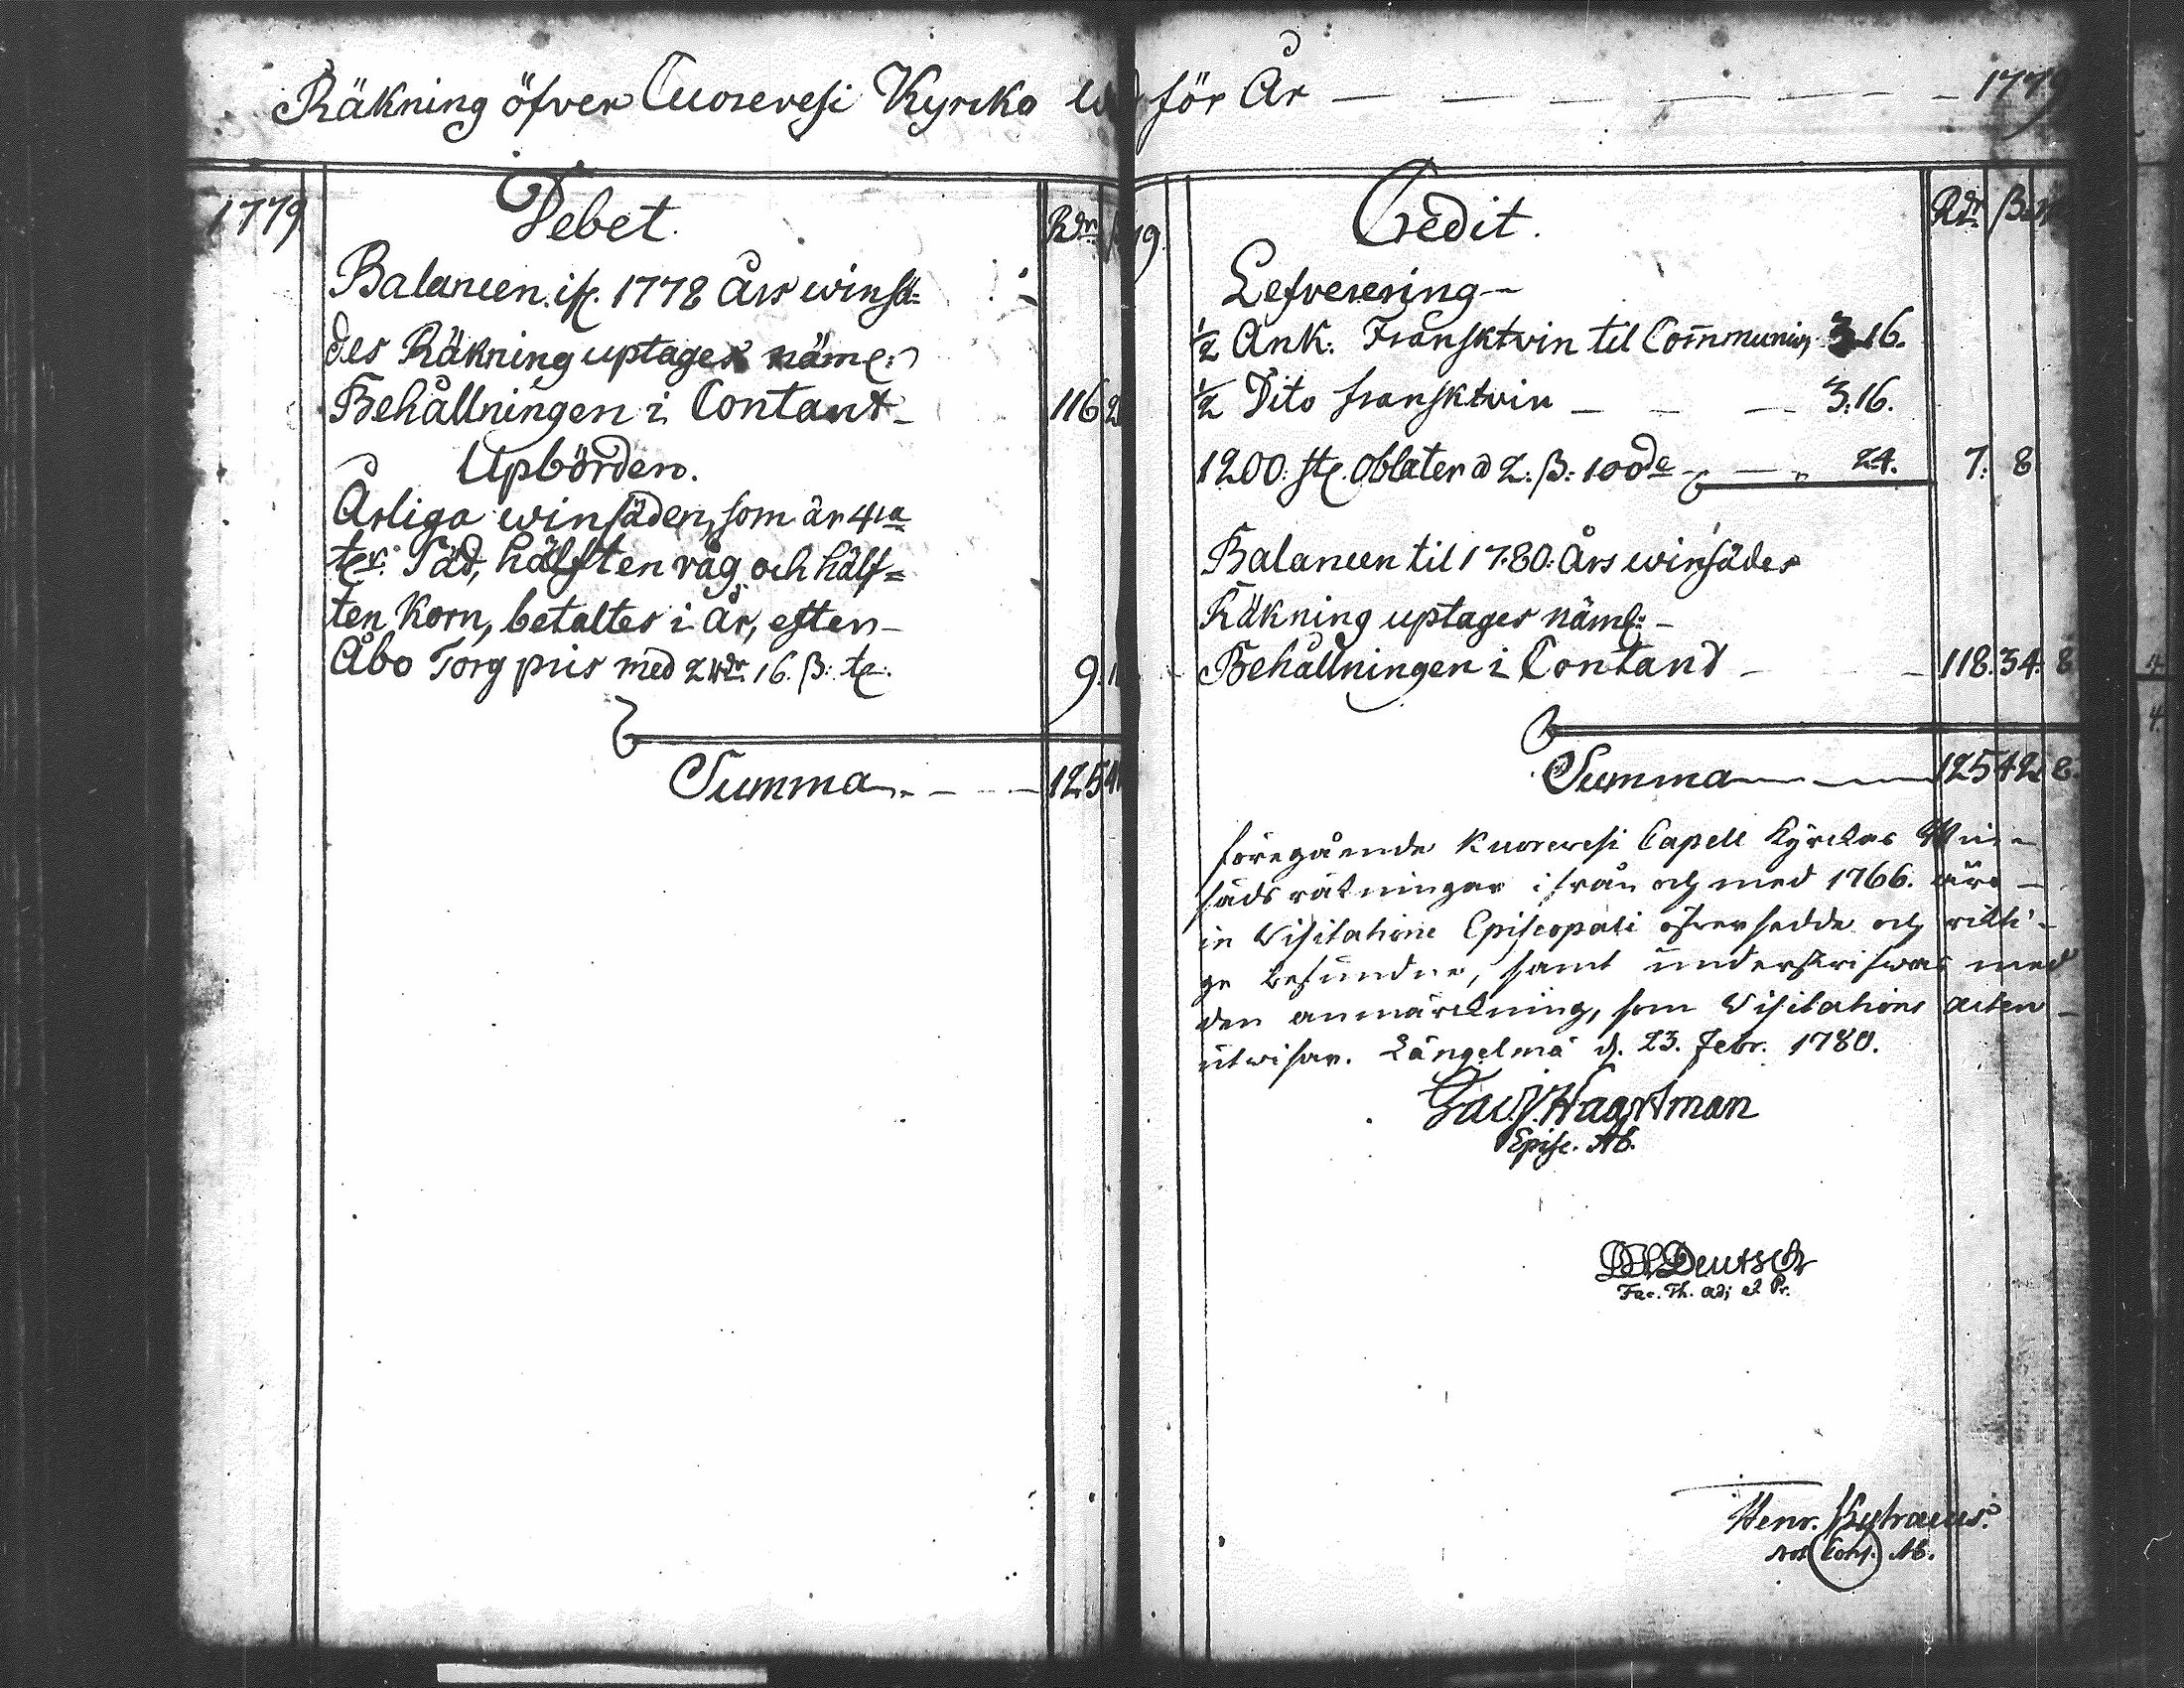 Räkning öfver Cuorevesi Kyrcko för År — — — — — 1779
1779
Debet.
Rdr
Balancen ifr. 1778 Års winsä=
des Räkning uptages näml:
Behållningen i Contant — 116 2
Upbörden.
Årliga winsäden, som är 4ra
tr: Säd, hälften råg och hälf=
ten Korn, betaltes i år, efter
Åbo Torg pris med 2 Rdr 16. ß: tr. 9. 1
Summa — — — 125 4
79.
Credit.
Rdr ß
Lefverering —
½ Ank: Fransktvin til Communion 3.16.
½ Dito fransktvin — — — 3:16.
1200: st. Oblater a 2: ß: 100de — — 24. 7: 8
Balancen til 1780: Års winsädes
Räkning uptages näml: —
Behållningen i Contant — — 118. 34. 8
Summa — — 125 42 8.
föregående Kuorevesi Capell Kyrckas Win=
sädsräkningar ifrån och med 1766. äro —
in Visitatione Episcopali öfversedde och rikti=
ge befundne, samt underskrifwas med
den anmärckning, som Visitations acten
utwisar. Längelmä d. 23. Febr. 1780.
Jac. Haartman
Episc. Ab.
Deutsch
Fac. Th. Adj et Pr.
Henr.
Not Cons. Ab.